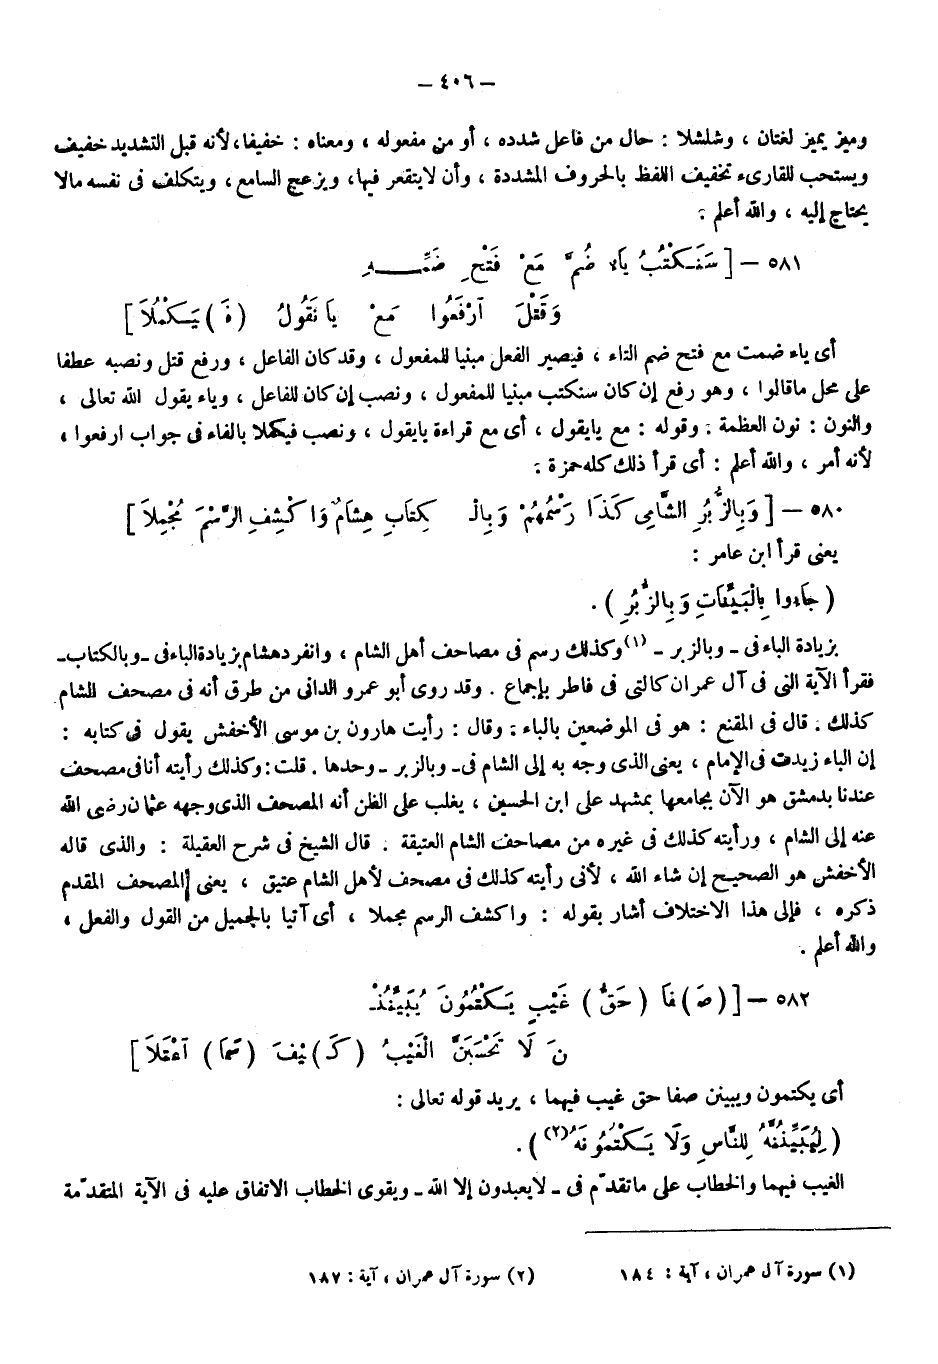 – ٤٠٦ –
وميز يميز لغتان ، وشلشلا : حال من فاعل شدده ، أو من مفعوله ، ومعناه : خفيفا، لأنه قبل التشديد خفيف
ويستحب للقارىء تخفيف اللفظ بالحروف المشددة ، وأن لايتقعر فيها، ويزعج السامع، ويتكلف فى نفسه مالا
يحتاج إليه ، والله أعلم .
٥٨١ – [ سَنَكْتُبُ يَاءٌ ضُمَّ مَعْ فَتْحِ ضَمِّـــهِ
وَقَتْلَ ارْفَعُوا مَعْ يَا نَقُولُ (فَ) يَكْمُلاَ ]
أى ياء ضمت مع فتح ضم التاء ، فيصير الفعل مبنيا للمفعول ، وقد كان الفاعل ، ورفع قتل ونصبه عطفا
على محل ماقالوا ، وهو رفع إن كان سنكتب مبنيا للمفعول ، ونصب إن كان للفاعل ، وياء يقول الله تعالى ،
والنون : نون العظمة . وقوله : مع يايقول ، أى مع قراءة يايقول ، ونصب فيكملا بالفاء فى جواب ارفعوا ،
لأنه أمر ، والله أعلم : أى قرأ ذلك كله حمزة .
٥٨٠ – [ وَبِالزُّبُرِ الشَّامِى كَذَا رَسْمُهُمْ وَبِالْـ كِتَابِ هِشَامٌ وَاكْشِفِ الرَّسْمَ مُجْمِلاَ ]
يعنى قرأ ابن عامر :
( جَاءوا بِالْبَيِّنَاتِ وَبِالزُّبُرِ ) .
بزيادة الباء فى ـ وبالزبر ـ (١) وكذلك رسم فى مصاحف أهل الشام ، وانفرد هشام بزيادة الباء فى ـ وبالكتاب ـ
فقرأ الآية التى فى آل عمران كالتى فى فاطر بإجماع . وقد روى أبو عمرو الدانى من طرق أنه فى مصحف الشام
كذلك . قال فى المقنع : هو فى الموضعين بالباء . وقال : رأيت هارون بن موسى الأخفش يقول فى كتابه :
إن الباء زيدت فى الإمام ، يعنى الذى وجه به إلى الشام فى ـ وبالزبر ـ وحدها . قلت : وكذلك رأيته أنا فى مصحف
عندنا بدمشق هو الآن بجامعها بمشهد على ابن الحسين ، يغلب على الظن أنه المصحف الذى وجهه عثمان رضى الله
عنه إلى الشام ، ورأيته كذلك فى غيره من مصاحف الشام العتيقة . قال الشيخ فى شرح العقيلة : والذى قاله
الأخفش هو الصحيح إن شاء الله ، لأنى رأيته كذلك فى مصحف لأهل الشام عتيق ، يعنى المصحف المقدم
ذكره ، فإلى هذا الاختلاف أشار بقوله : واكشف الرسم مجملا ، أى آتيا بالجميل من القول والفعل ،
والله أعلم .
٥٨٢ – [ (صَ) فَا (حَقُّ) غَيْبٍ يَكْتُمُونَ يُبَيِّنُنْـ
نَ لَا تَحْسَبَنَّ الْغَيْبُ (كَـ) يْفَ (سَمَا) اعْتَلاَ ]
أى يكتمون ويبينن صفا حق غيب فيهما ، يريد قوله تعالى :
( لِيُبَيِّنُنَّهُ لِلنَّاسِ وَلَا يَكْتُمُونَهُ (٢) ) .
الغيب فيهما والخطاب على ماتقدّم فى ـ لايعبدون إلا الله ـ ويقوى الخطاب الاتفاق عليه فى الآية المتقدّمة
(١) سورة آل عمران ، آية : ١٨٤ (٢) سورة آل عمران ، آية : ١٨٧